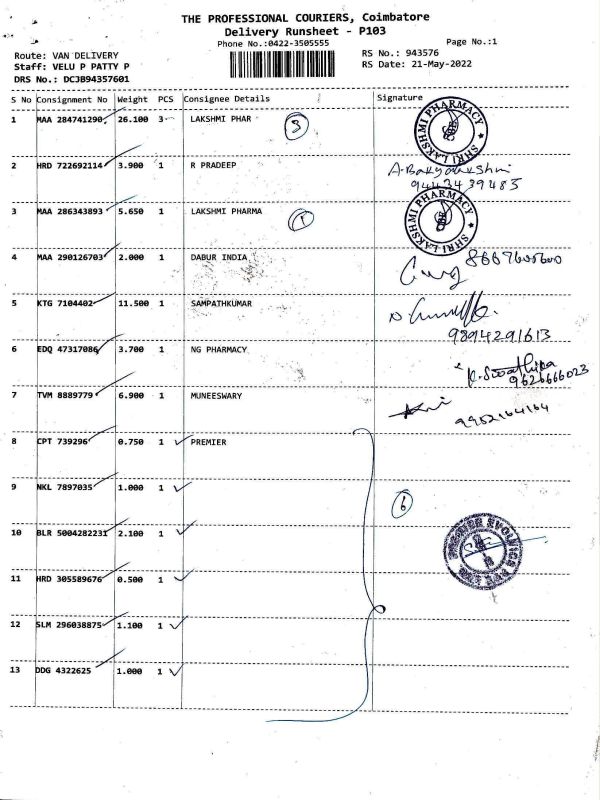 THE PROFESSIONAL COURIERS, Coimbatore
Delivery Runsheet - P103
Phone No.:0422-3505555 Page No.:1
Route: VAN DELIVERY RS No.: 943576
Staff: VELU P PATTY P RS Date: 21-May-2022
DRS No.: DCJB94357601
S No Consignment No Weight PCS Consignee Details Signature
1 MAA 284741290 26.100 3 LAKSHMI PHAR 3 SHRI LAKSHMI PHARMACY
2 HRD 722692114 3.900 1 R PRADEEP
9443439485
3 MAA 286343893 5.650 1 LAKSHMI PHARMA 1 SHRI LAKSHMI PHARMACY
4 MAA 290126703 2.000 1 DABUR INDIA
5 KTG 7104402 11.500 1 SAMPATHKUMAR
9894291613
6 EDQ 47317086 3.700 1 NG PHARMACY
9626666023
7 TVM 8889779 6.900 1 MUNEESWARY
9952164164
8 CPT 739296 0.750 1 PREMIER
9 NKL 7897035 1.000 1
6
10 BLR 5004282231 2.100 1
11 HRD 305589676 0.500 1
12 SLM 296038875 1.100 1
13 DDG 4322625 1.000 1